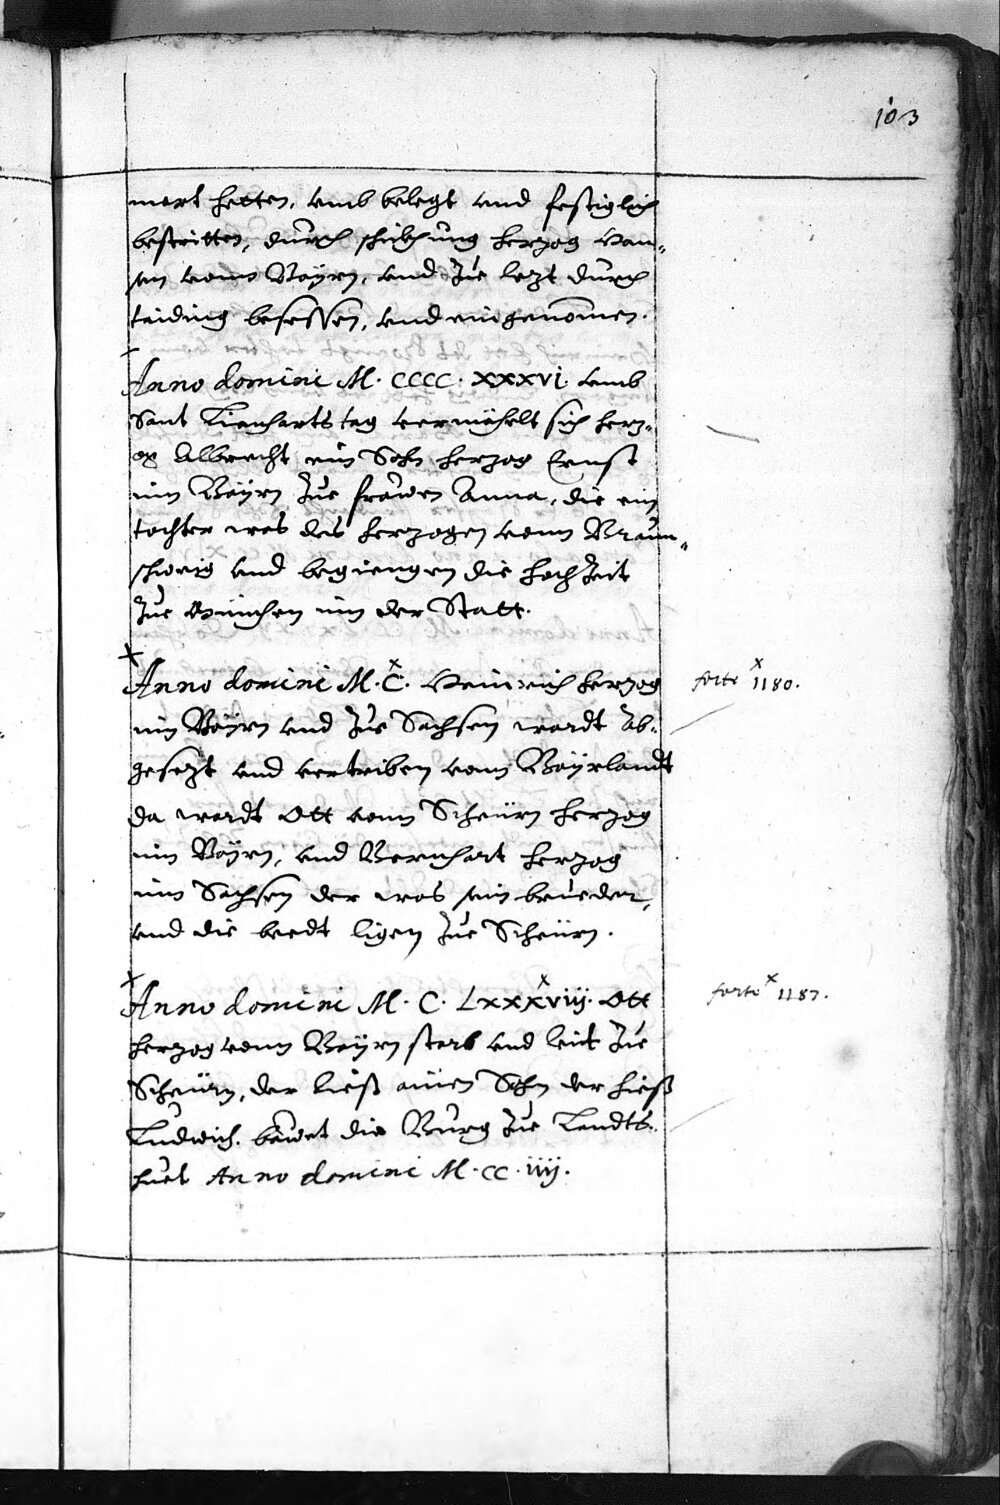 103
mert hetten, vmb belegt vnd festiglich
bestritten, durch schickhung herzog Han-
sen vonn Bayrn, vnd zue lezt durch
taiding besessen, vnd eingenomen.
Anno domini M. CCCC. XXXVI. vmb
Sant Lienharts tag vermähelt sich herz-
og Albrecht ein Sohn herzog Ernst
inn Bayrn zue frawen Anna, die ein
tochter was des herzogen vonn Braun-
schweig vnd begiengen die hochzeit
zue München inn der Statt.
Anno domini M. C. Heinrich herzog
inn Bayrn vnd zue Sachsen wardt ab-
gesezt vnd vertriben vom Bayrlandt
da wardt Ott vonn Scheürn herzog
inn Bayrn, vnd Bernhart herzog
inn Sachsen der was sein brueder,
vnd die beedt ligen zue Scheürn.
Anno domini M. C. Lxxxviij. Ott
herzog vonn Bayrn starb vnd leit zue
Scheürn, der ließ ainen Sohn der hieß
Ludwich. bawet die Burg zue Landts-
huet Anno domini M. CC. iiij.
forte x 1180.
forte x 1183.